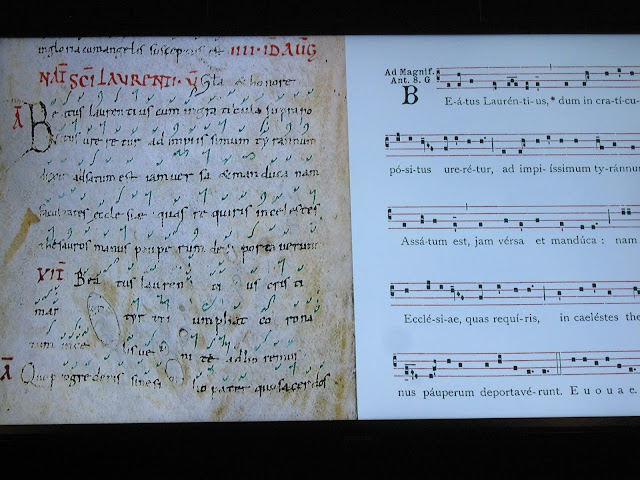 ingloria cum angelis susceptus est IIII·ID AUG
NAT SCI LAURENTII· V Gla & honore
A Beatus laurentius cum ingra ticula
ure re tur ad impiissimum tyrannum
assatum est iam ver sa & manduca nam
facultates eccle siae quas re quiris in celestes
thesauros manus paupe rum de porta verunt
VII Bea tus lauren ti us cristi
mar tyr tri umphat co rona
A Que progre deris sine
Ad Magnif.
Ant. 8. G
BE-á-tus Laurén-ti-us,* dum in cra-tí-cu-
pó-si-tus ure-ré-tur, ad impi-íssimum ty-ránnu
Assá-tum est, jam vérsa et mandúca : nam
Ecclé-si-ae, quas requí-ris, in caeléstes the
nus páuperum deportavé-runt. E u o u a e.